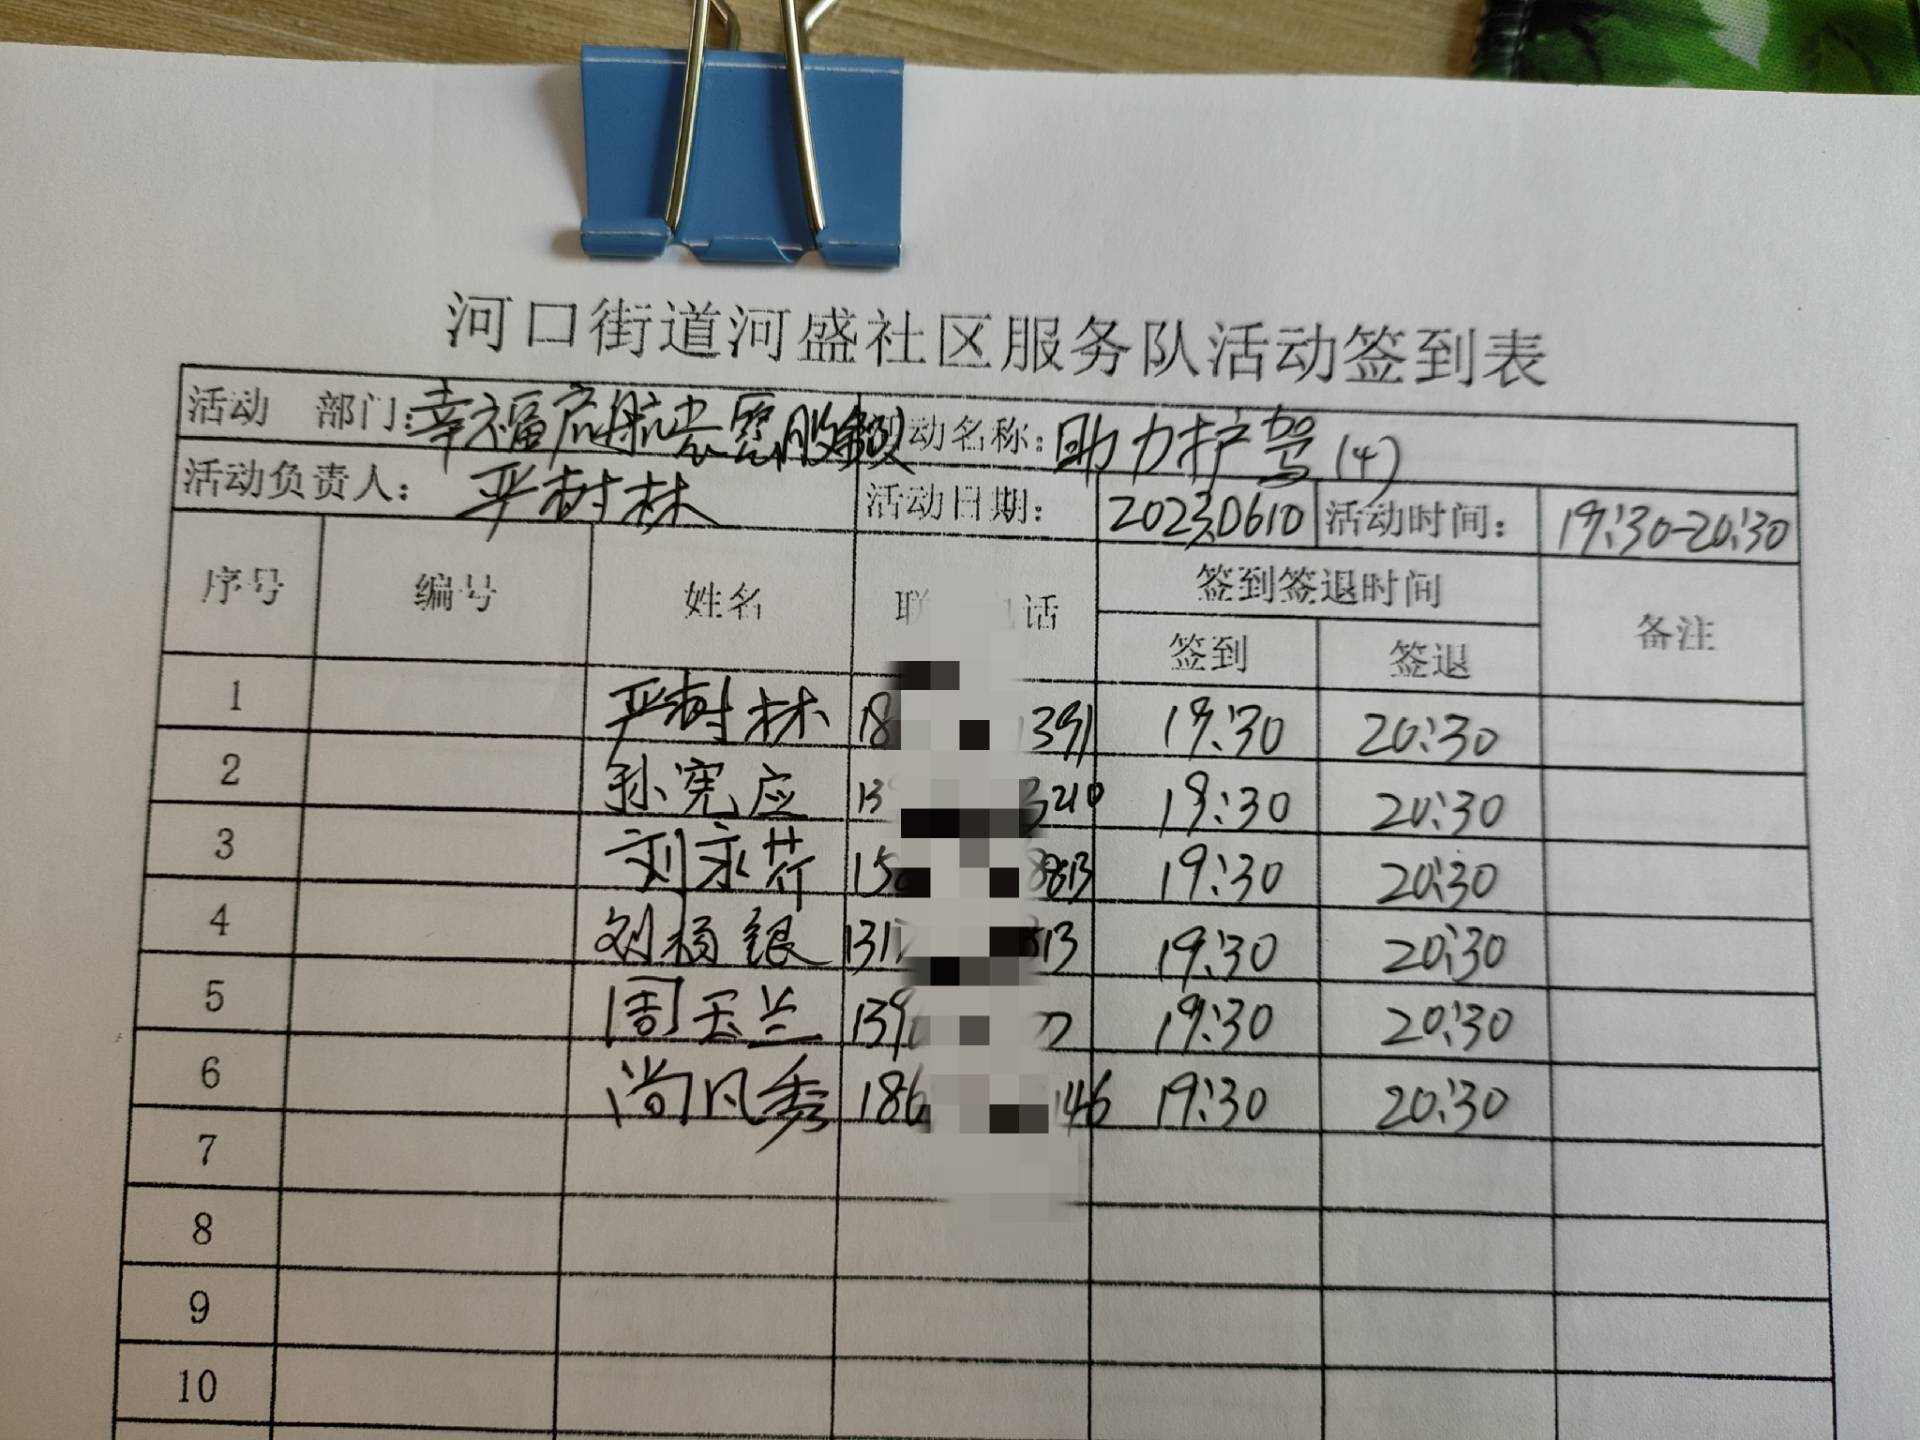 河口街道河盛社区服务队活动签到表
活动 部门：幸福启航 活动名称： 助力护驾(4)
活动负责人： 严树林 活动日期： 20230610 活动时间： 19:30-20:30
序号 编号 姓名 联 话 签到签退时间 备注
签到 签退
1 严树林 18 1391 19:30 20:30
2 孙宪应 13 3210 19:30 20:30
3 刘永芹 150 8813 19:30 20:30
4 刘杨银 1317 813 19:30 20:30
5 周玉兰 139 19:30 20:30
6 尚凡秀 186 146 19:30 20:30
7
8
9
10